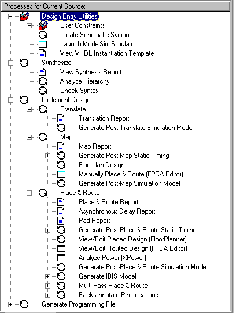 Processes for Current Source:
Design Entry Utilities
User Constraints
Launch ModelSim Simulator
View VHDL Instantiation Template
Synthesize
View Synthesis Report
Analyze Hierarchy
Check Syntax
Implement Design
Translate
Translation Report
Generate Post-Translate Simulation Model
Map
Map Report
Generate Post-Map Static Timing
Floorplan Design
Manually Place & Route (FPGA Editor)
Generate Post-Map Simulation Model
Place & Route
Place & Route Report
Asynchronous Delay Report
Pad Report
Generate Post-Place & Route Static Timing
View/Edit Placed Design (FloorPlanner)
View/Edit Routed Design (FPGA Editor)
Analyze Power (XPower)
Generate Post-Place & Route Simulation Model
Generate IBIS Model
Multi Pass Place & Route
Generate Programming File